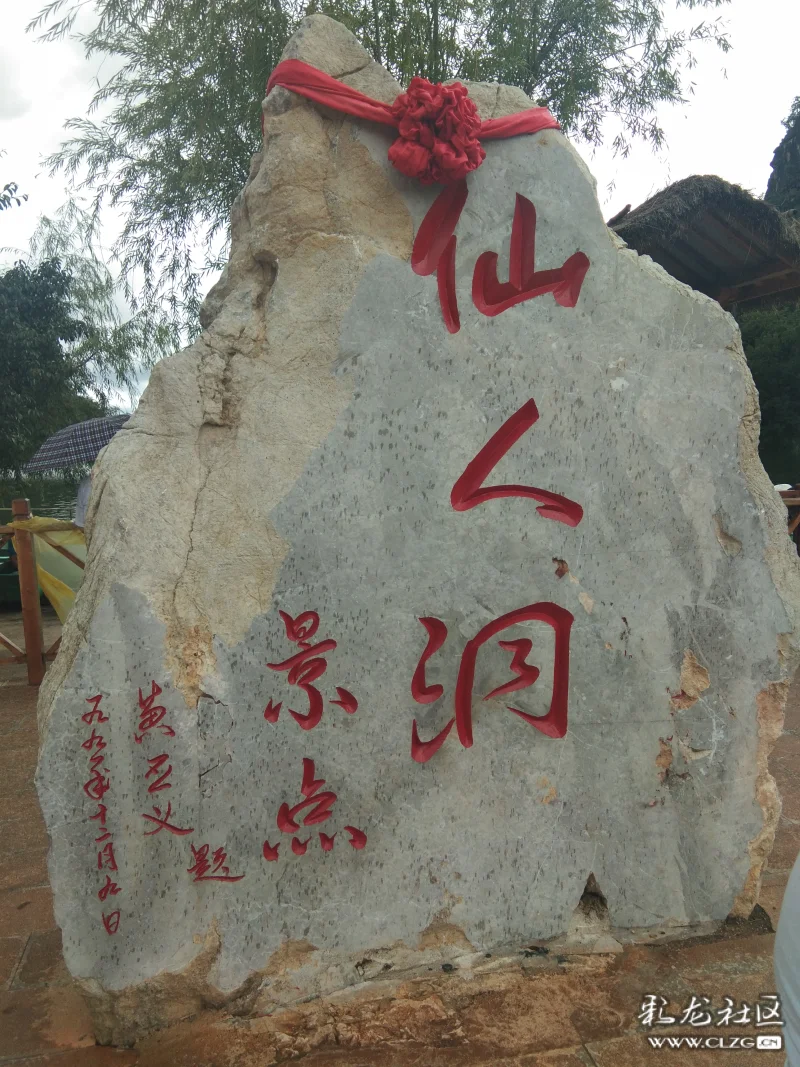 仙人洞
景点
黄正义题
九九年十二月九日
彩龙社区
WWW.CLZG.CN